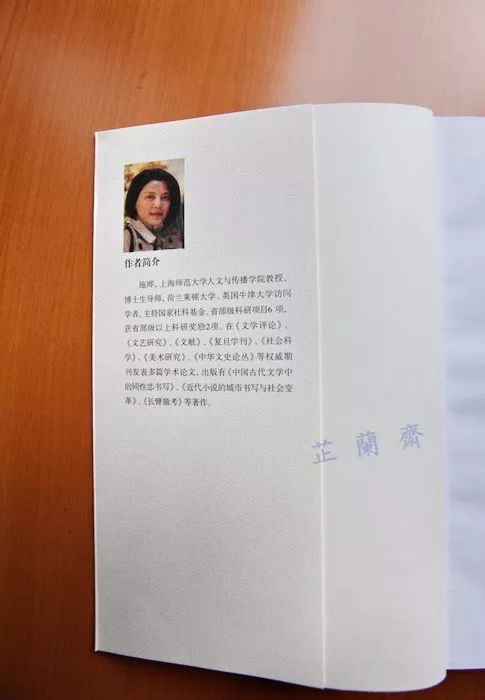 作者简介
施晔，上海师范大学人文与传播学院教授、
博士生导师，荷兰莱顿大学、英国牛津大学访问
学者，主持国家社科基金、省部级科研项目6项，
获省部级以上科研奖励2项。在《文学评论》、
《文艺研究》、《文献》、《复旦学刊》、《社会科
学》、《美术研究》、《中华文史论丛》等权威期
刊发表多篇学术论文，出版有《中国古代文学中
的同性恋书写》、《近代小说的城市书写与社会变
革》、《长臂猿考》等著作。
芷蘭齋